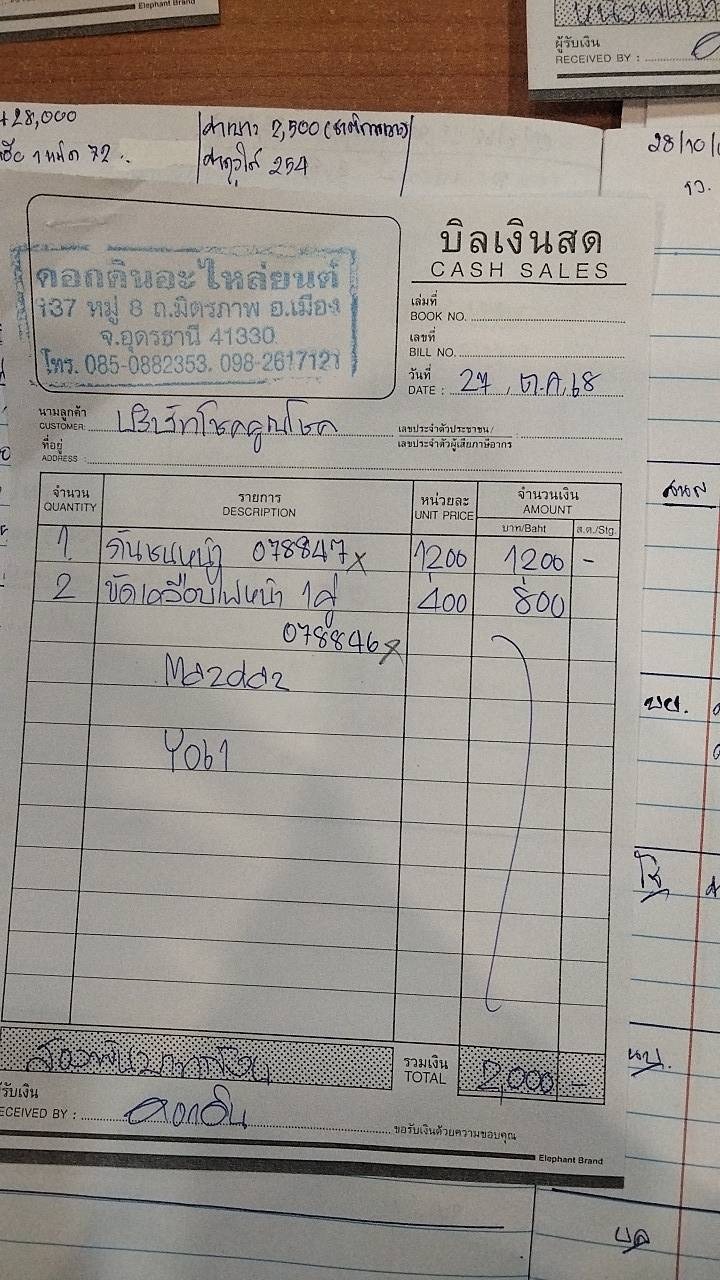 Elephant Brand
ผู้รับเงิน
RECEIVED BY :
28,000
2,500
254
72
28/10/
บิลเงินสด
CASH SALES
ดอกดินอะไหล่ยนต์
137 หมู่ 8 ถ.มิตรภาพ อ.เมือง
จ.อุดรธานี 41330
โทร. 085-0882353, 098-2617121
เล่มที่
BOOK NO.
เลขที่
BILL NO.
วันที่
DATE : 27 , ต.ค, 68
นามลูกค้า
CUSTOMER: บริษัทโชคคูณโชค
เลขประจำตัวประชาชน /
เลขประจำตัวผู้เสียภาษีอากร :
ที่อยู่
ADDRESS :
จำนวน รายการ หน่วยละ จำนวนเงิน
QUANTITY DESCRIPTION UNIT PRICE AMOUNT
บาท/Baht ส.ต./Stg.
1 กันชนหน้า 078847 x 1200 1200 -
2 ขัดเคลือบไฟหน้า 1คู่ 400 800
078846 x
Mazda2
สองพันบาทถ้วน
รวมเงิน
TOTAL 2,000 -
ผู้รับเงิน
RECEIVED BY : ดอกดิน
ขอรับเงินด้วยความขอบคุณ
Elephant Brand